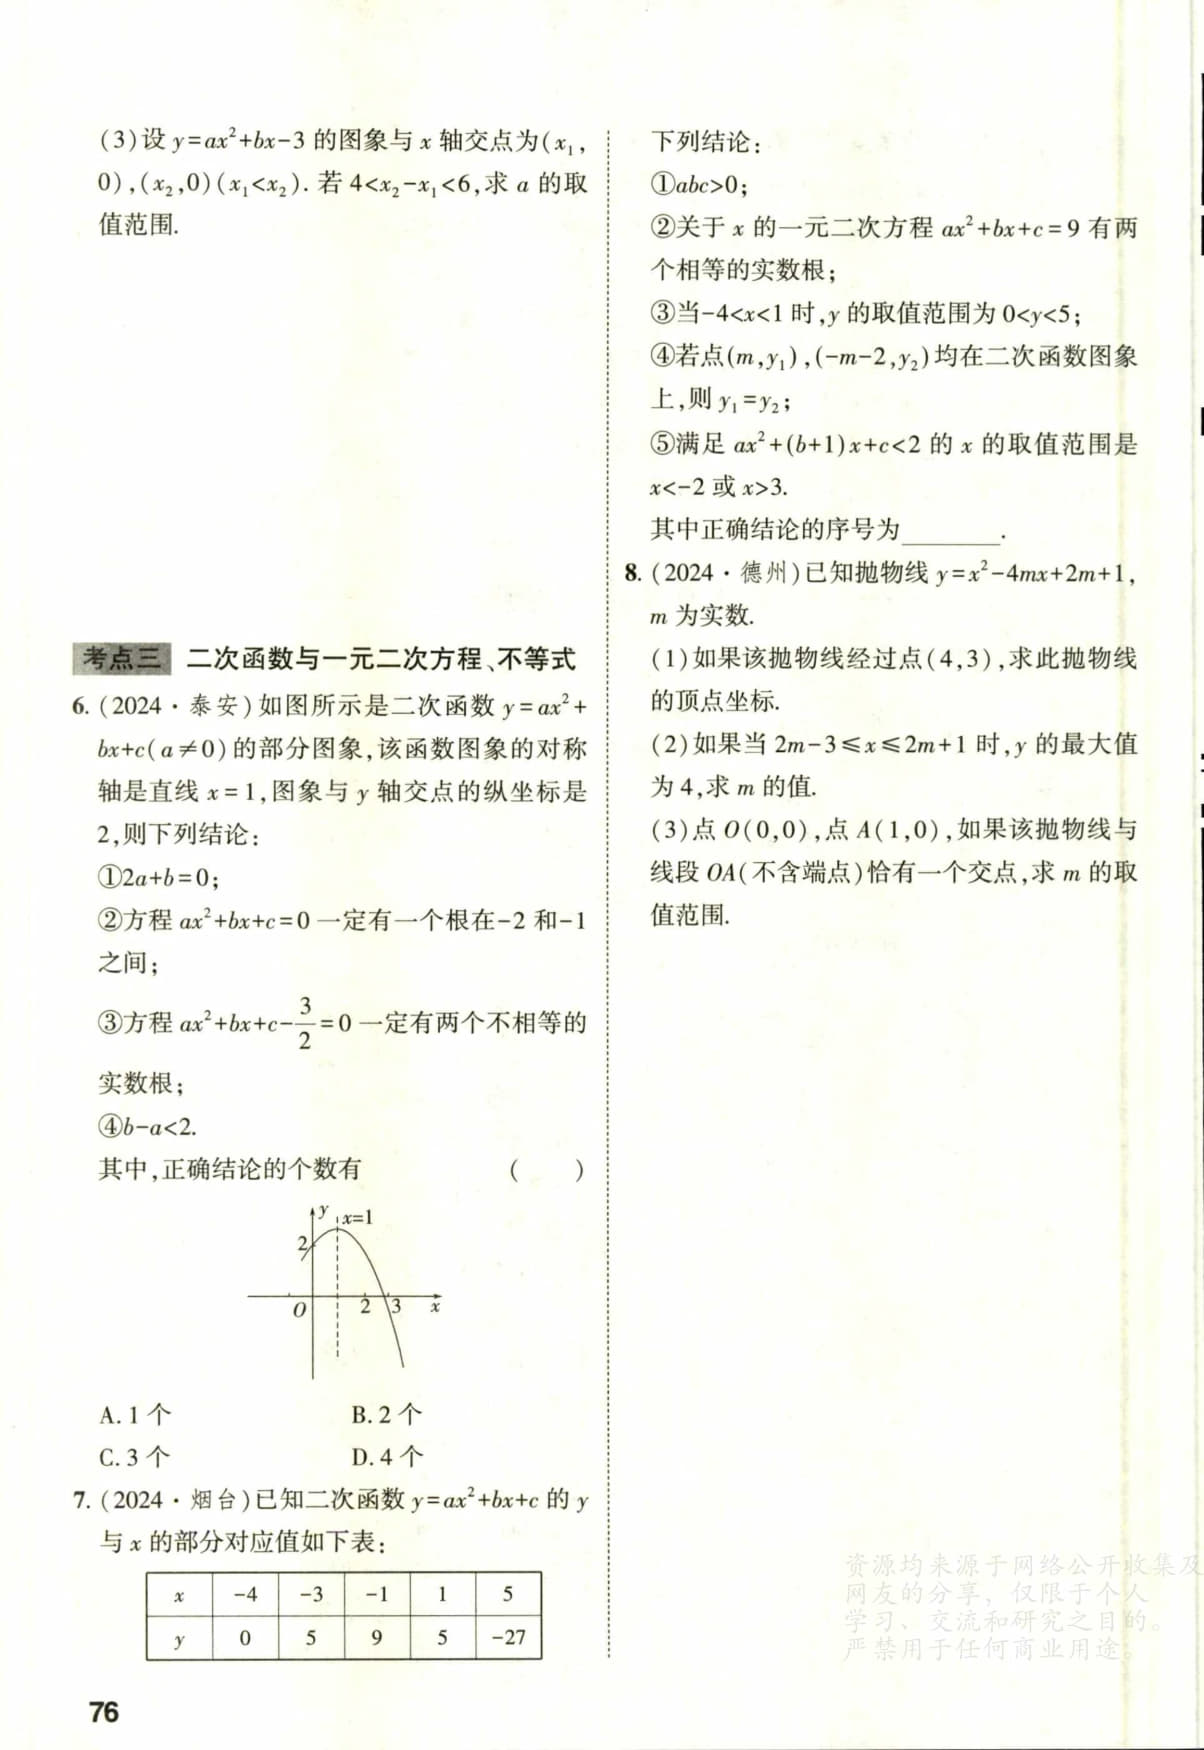 (3)设 y=ax²+bx-3 的图象与 x 轴交点为(x₁,
0),(x₂,0)(x₁<x₂). 若 4<x₂-x₁<6,求 a 的取
值范围.
考点三 二次函数与一元二次方程、不等式
6. (2024·泰安)如图所示是二次函数 y=ax²+
bx+c(a≠0)的部分图象,该函数图象的对称
轴是直线 x=1,图象与 y 轴交点的纵坐标是
2,则下列结论:
①2a+b=0;
②方程 ax²+bx+c=0 一定有一个根在-2 和-1
之间;
③方程 ax²+bx+c-3/2=0 一定有两个不相等的
实数根;
④b-a<2.
其中,正确结论的个数有 ( )
y x=1
2
O 2 3 x
A. 1 个 B. 2 个
C. 3 个 D. 4 个
7. (2024·烟台)已知二次函数 y=ax²+bx+c 的 y
与 x 的部分对应值如下表:
x -4 -3 -1 1 5
y 0 5 9 5 -27
76
下列结论:
①abc>0;
②关于 x 的一元二次方程 ax²+bx+c=9 有两
个相等的实数根;
③当-4<x<1 时,y 的取值范围为 0<y<5;
④若点(m,y₁),(-m-2,y₂)均在二次函数图象
上,则 y₁=y₂;
⑤满足 ax²+(b+1)x+c<2 的 x 的取值范围是
x<-2 或 x>3.
其中正确结论的序号为________.
8. (2024·德州)已知抛物线 y=x²-4mx+2m+1,
m 为实数.
(1)如果该抛物线经过点(4,3),求此抛物线
的顶点坐标.
(2)如果当 2m-3≤x≤2m+1 时,y 的最大值
为 4,求 m 的值.
(3)点 O(0,0),点 A(1,0),如果该抛物线与
线段 OA(不含端点)恰有一个交点,求 m 的取
值范围.
资源均来源于网络公开收集及
网友的分享，仅限于个人
学习、交流和研究之目的。
严禁用于任何商业用途。